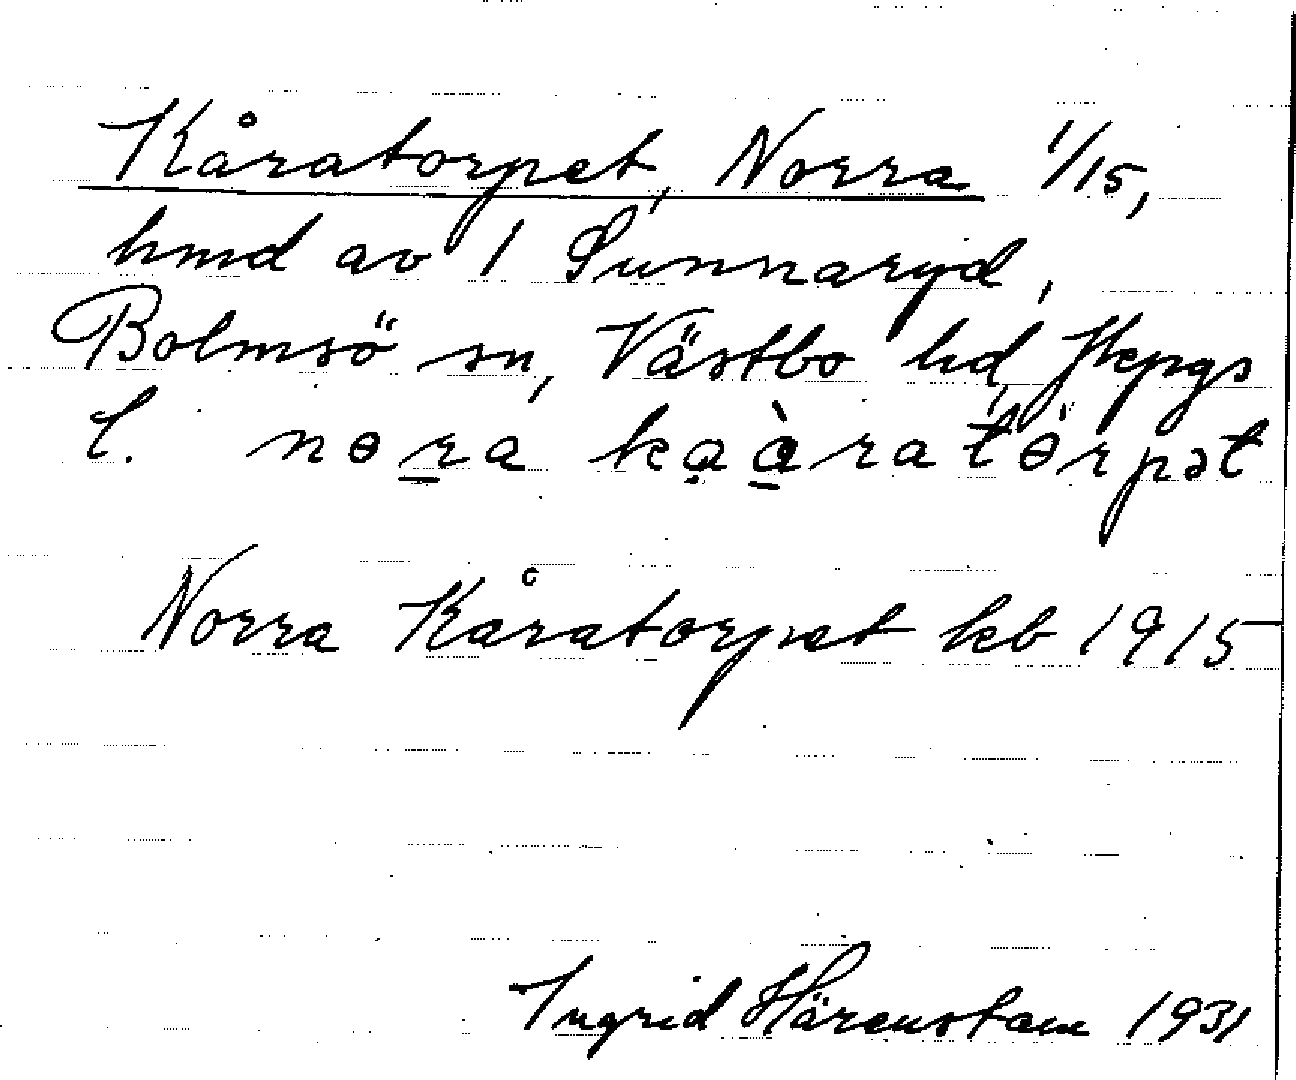 Kåratorpet, Norra 1/15,
hmd av 1 Sunnaryd,
Bolmsö sn, Västbo hd, Jkpgs
l. nɵra kạàratɵ̈rpət
Norra Kåratorpet kb 1915
Ingrid Härenstam 1931